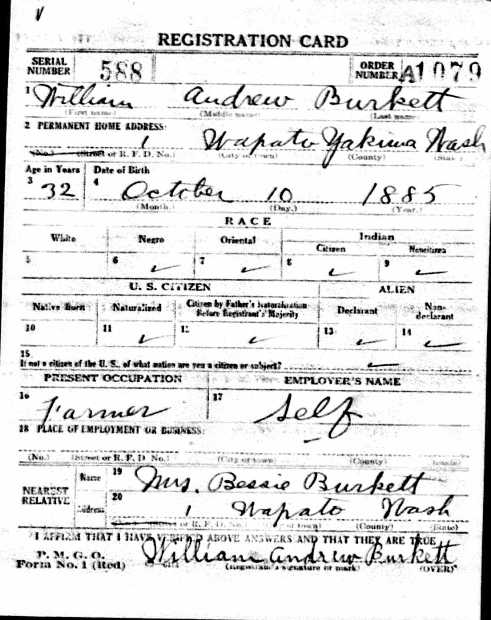 REGISTRATION CARD
SERIAL NUMBER 588 ORDER NUMBER A1079
1 William Andrew Burkett
(First name) (Middle name) (Last name)
2 PERMANENT HOME ADDRESS:
1 Wapato Yakima Wash
(No.) (Street or R. F. D. No.) (City or town) (County) (State)
Age in Years Date of Birth
3 32 4 October 10 1885
(Month.) (Day.) (Year.)
RACE
White Negro Oriental Indian
Citizen Noncitizen
5 6 ✓ 7 ✓ 8 ✓ 9 ✓
U. S. CITIZEN ALIEN
Native Born Naturalized Citizen by Father's Naturalization Before Registrant's Majority Declarant Non-declarant
10 11 ✓ 12 ✓ 13 ✓ 14 ✓
15
If not a citizen of the U. S., of what nation are you a citizen or subject?
PRESENT OCCUPATION EMPLOYER'S NAME
16 Farmer 17 Self
18 PLACE OF EMPLOYMENT OR BUSINESS:
(No.) (Street or R. F. D. No.) (City or town) (County) (State)
NEAREST RELATIVE Name 19 Mrs. Bessie Burkett
Address 20 1 Wapato Wash
(Street or R. F. D. No.) (City or town) (County) (State)
I AFFIRM THAT I HAVE VERIFIED ABOVE ANSWERS AND THAT THEY ARE TRUE
P. M. G. O.
Form No. 1 (Red) William Andrew Burkett
(Registrant's signature or mark) (OVER)